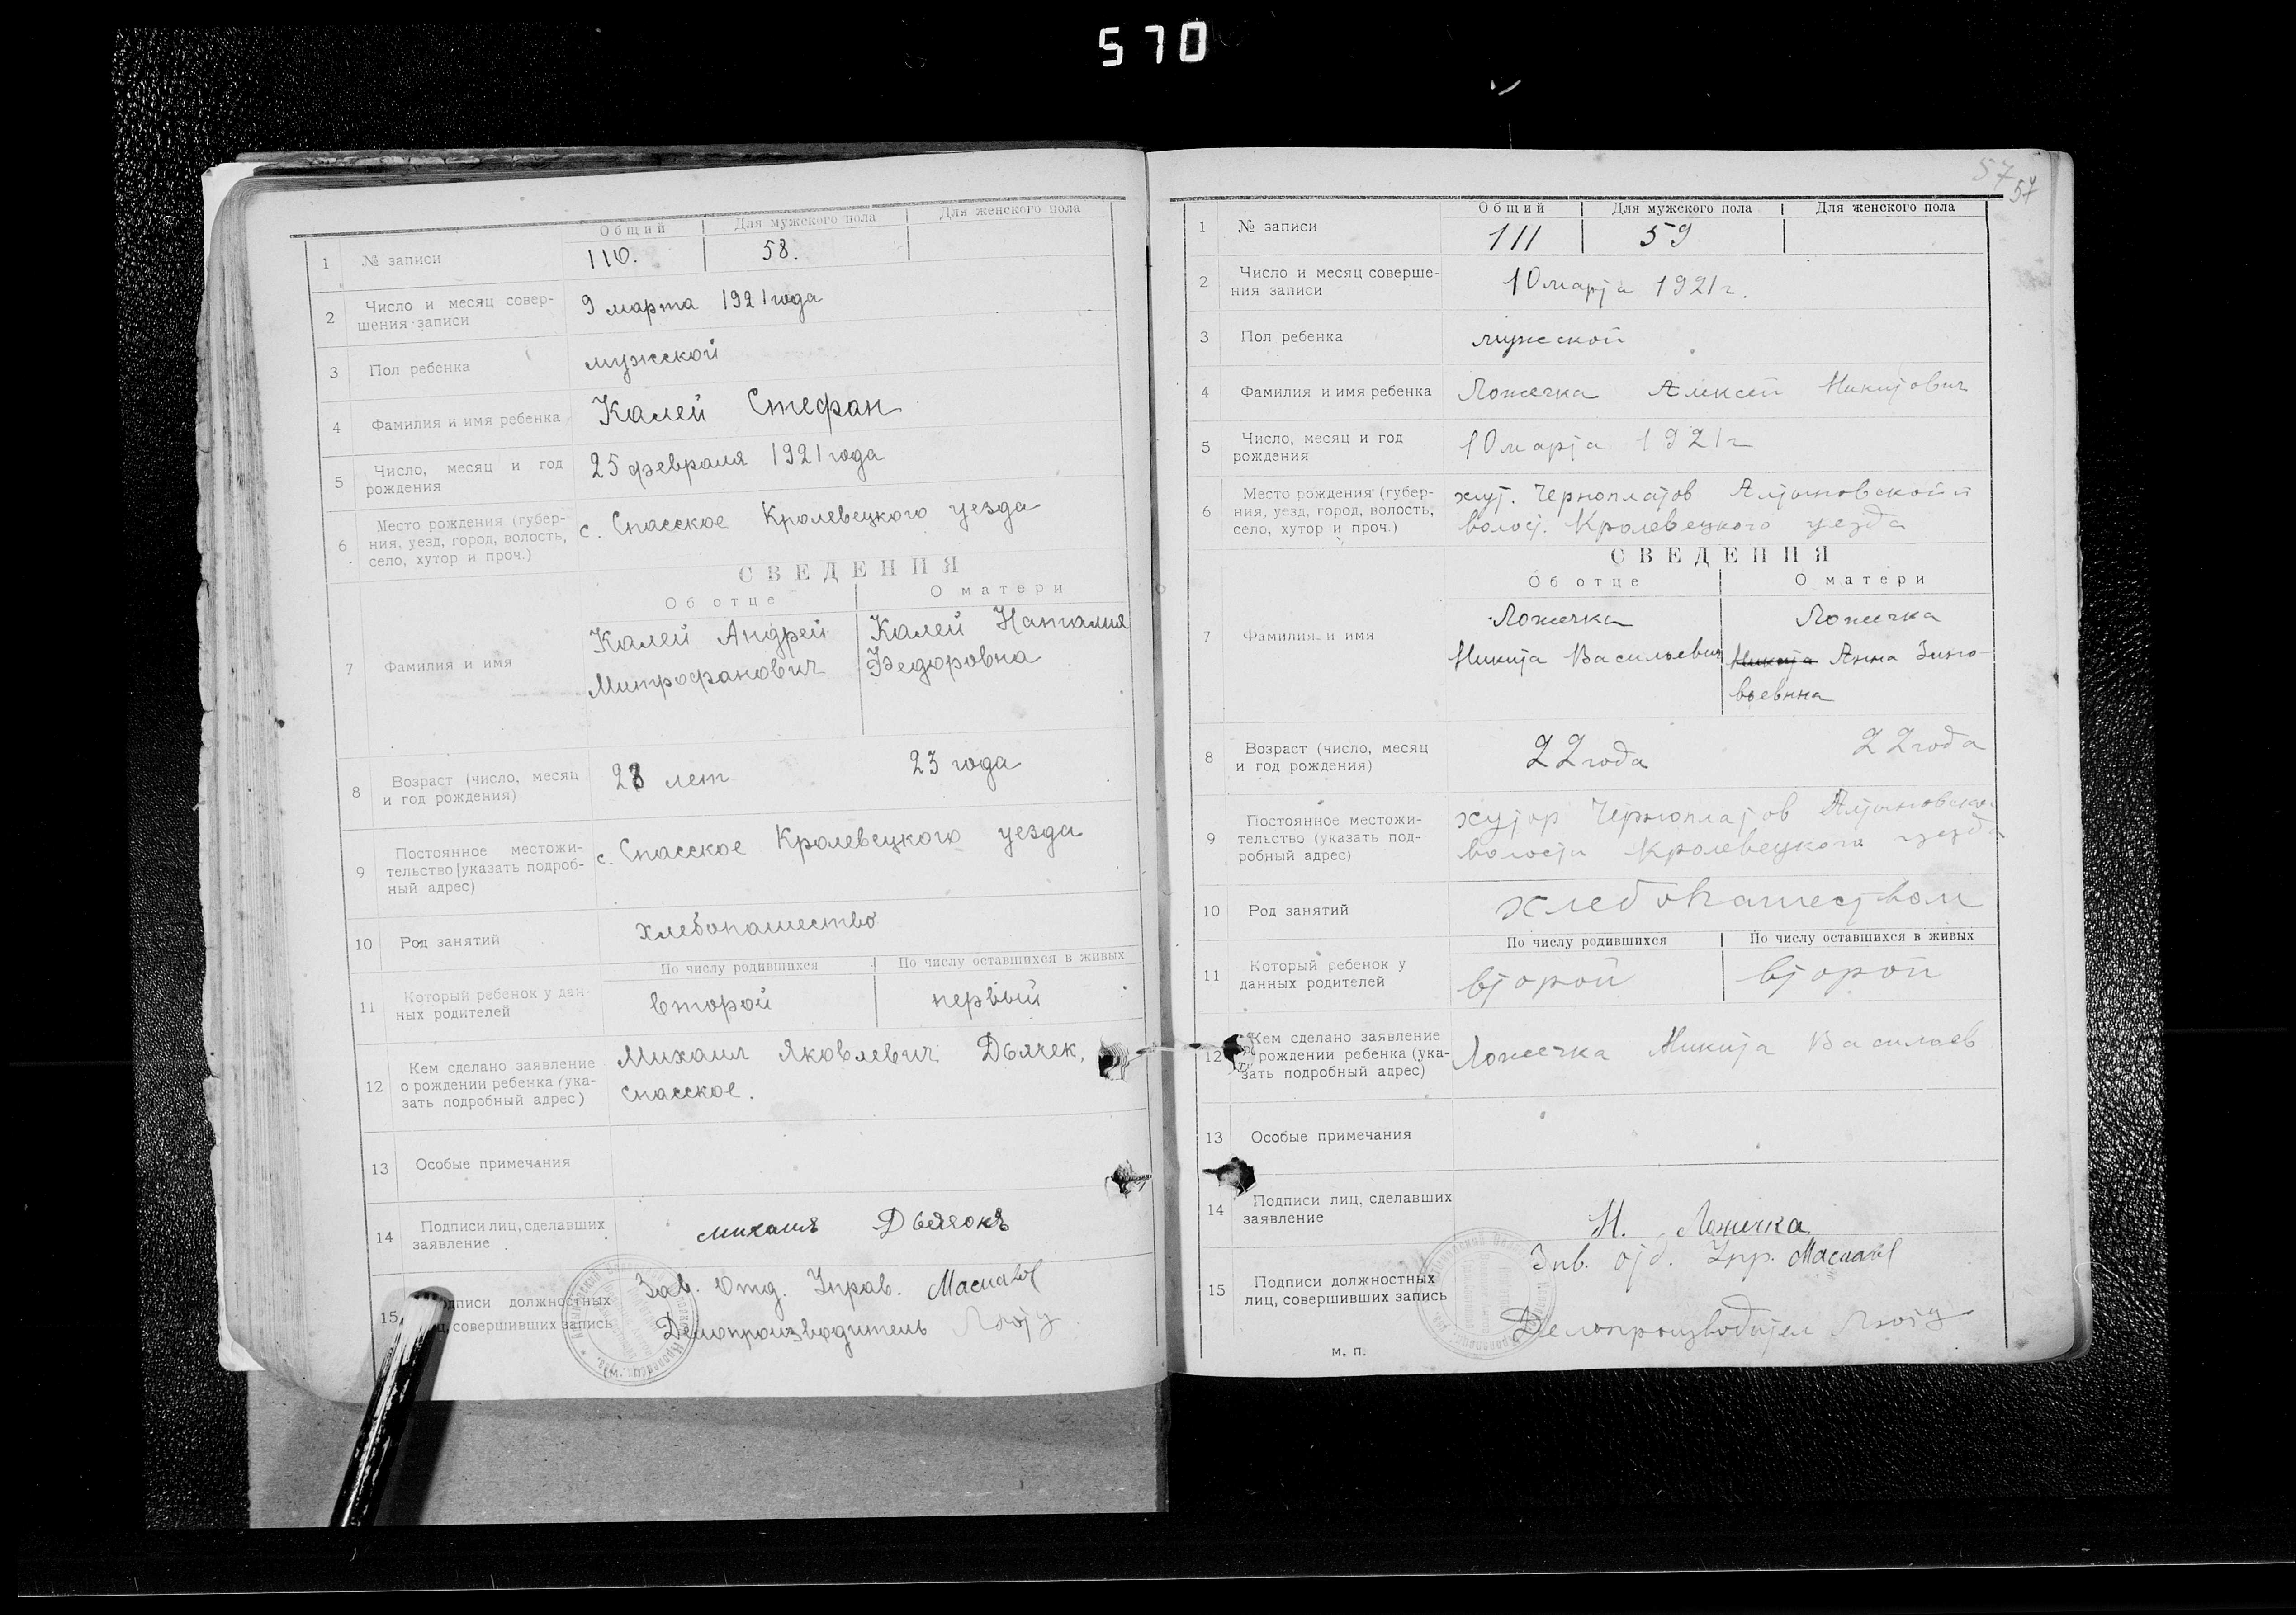 570
Общий Для мужского пола Для женского пола
1 № записи 110. 58.
2 Число и месяц совер-
шения записи 9 марта 1921 года
3 Пол ребенка мужской
4 Фамилия и имя ребенка Калей Стефан
5 Число, месяц и год
рождения 25 февраля 1921 года
6 Место рождения (губер-
ния, уезд, город, волость,
село, хутор и проч.) с. Спасское Кролевецкого уезда
СВЕДЕНИЯ
Об отце О матери
7 Фамилия и имя
Калей Андрей Калей Наталия
Митрофанович Федоровна
8 Возраст (число, месяц
и год рождения) 28 лет 23 года
9 Постоянное местожи-
тельство (указать подроб-
ный адрес) с. Спасское Кролевецкого уезда
10 Род занятий хлебопашество
По числу родившихся По числу оставшихся в живых
11 Который ребенок у дан-
ных родителей второй первый
12 Кем сделано заявление
о рождении ребенка (ука-
зать подробный адрес)
Михаил Яковлевич Дьячек,
Спасское.
13 Особые примечания
14 Подписи лиц, сделавших
заявление михаилъ Дьячокъ
15 подписи должностных
лиц, совершивших запись
Зав. Отд. Управ.
Делопроизводитель
(м. п.)
57 57
Общий Для мужского пола Для женского пола
1 № записи 111 59
2 Число и месяц соверше-
ния записи 10 марта 1921 г.
3 Пол ребенка мужской
4 Фамилия и имя ребенка Ложечка Алексей Никитович
5 Число, месяц и год
рождения 10 марта 1921 г
6 Место рождения (губер-
ния, уезд, город, волость,
село, хутор и проч.)
хут. Черноплатов Алтыновской
волост. Кролевецкого уезда
СВЕДЕНИЯ
Об отце О матери
7 Фамилия и имя
Ложечка Ложечка
Никита Васильевич Никита Анна Зино-
вьевна
8 Возраст (число, месяц
и год рождения) 22 года 22 года
9 Постоянное местожи-
тельство (указать под-
робный адрес)
хутор Черноплатов Алтыновской
волости Кролевецкого уезда
10 Род занятий хлебопашеством
По числу родившихся По числу оставшихся в живых
11 Который ребенок у
данных родителей второй второй
12 Кем сделано заявление
о рождении ребенка (ука-
зать подробный адрес)
Ложечка Никита Васильев
13 Особые примечания
14 Подписи лиц, сделавших
заявление Н. Ложечка
15 Подписи должностных
лиц, совершивших запись
Зав. отд. Упр.
Делопроизводител
м. п.